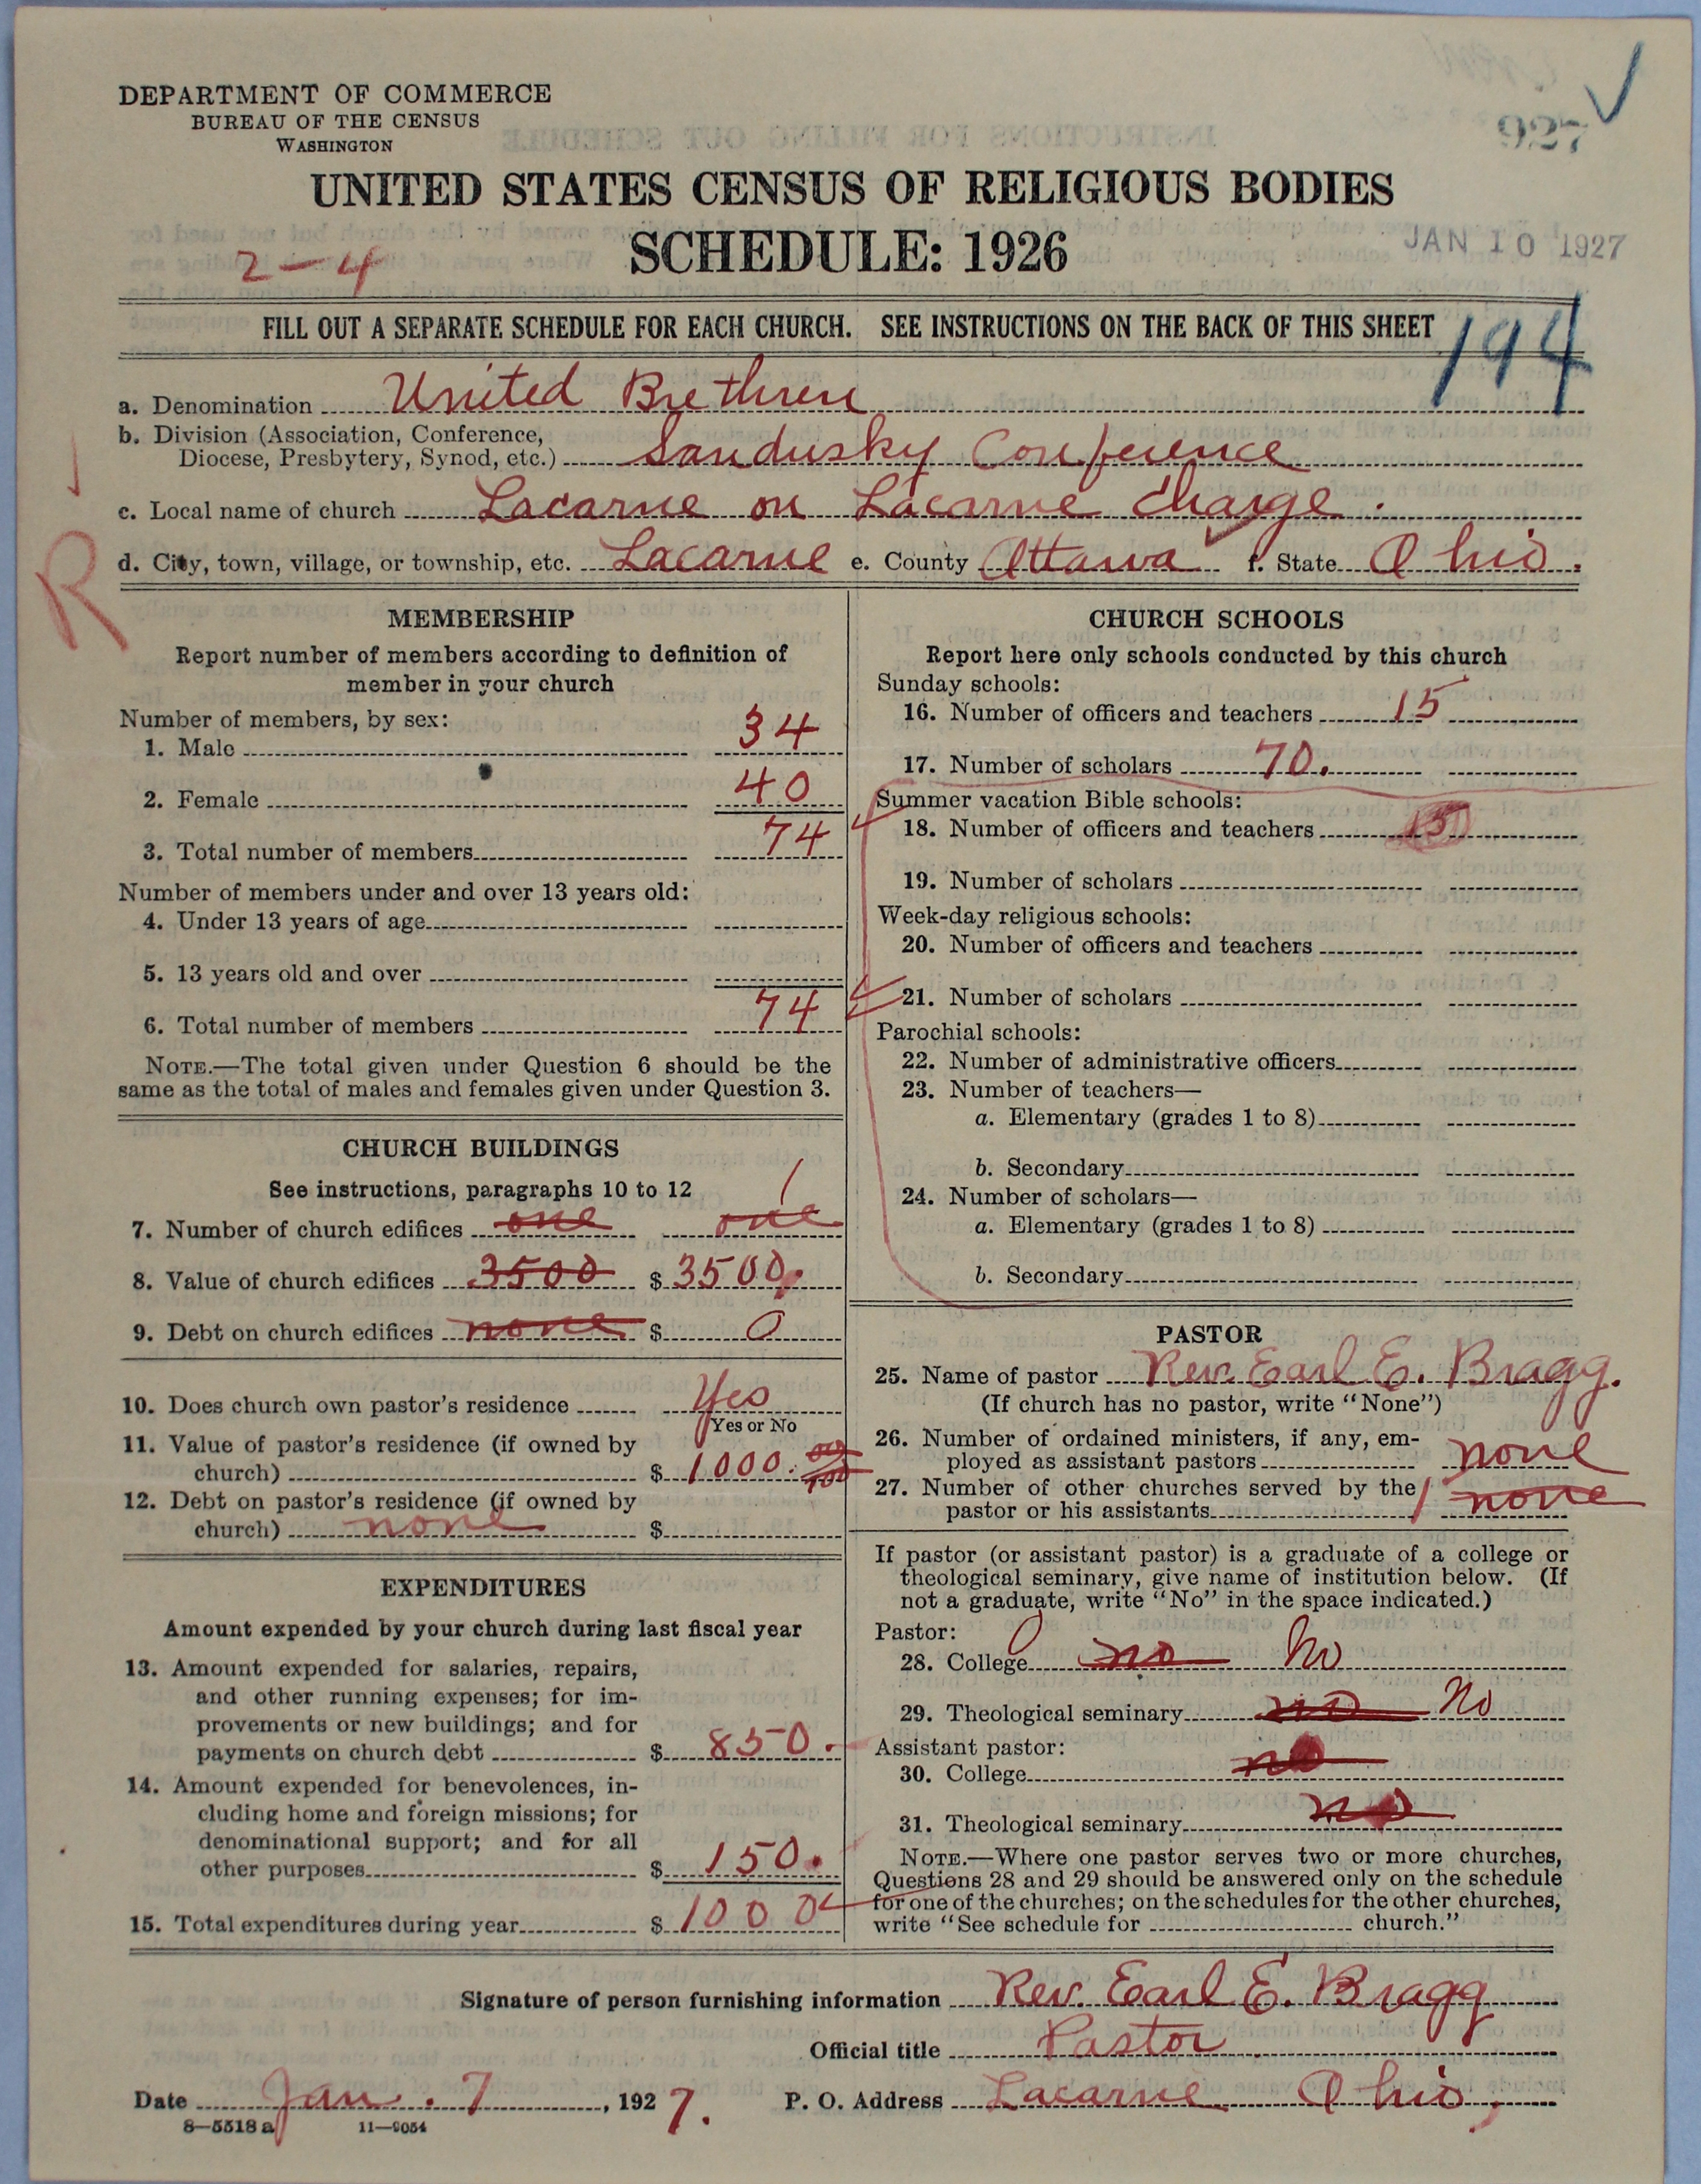 DEPARTMENT OF COMMERCE
BUREAU OF THE CENSUS
WASHINGTON
927
UNITED STATES CENSUS OF RELIGIOUS BODIES
SCHEDULE: 1926
2-4
JAN 10 1927
FILL OUT A SEPARATE SCHEDULE FOR EACH CHURCH. SEE INSTRUCTIONS ON THE BACK OF THIS SHEET
194
a. Denomination United Brethren
b. Division (Association, Conference,
Diocese, Presbytery, Synod, etc.) Sandusky Conference
c. Local name of church Lacarne on Lacarne Charge.
d. City, town, village, or township, etc. Lacarne e. County Ottawa f. State Ohio.
R
MEMBERSHIP
Report number of members according to definition of
member in your church
Number of members, by sex:
1. Male 34
2. Female 40
3. Total number of members 74
Number of members under and over 13 years old:
4. Under 13 years of age
5. 13 years old and over
6. Total number of members 74
NOTE.—The total given under Question 6 should be the
same as the total of males and females given under Question 3.
CHURCH BUILDINGS
See instructions, paragraphs 10 to 12
1
7. Number of church edifices one one
8. Value of church edifices 3500 $ 3500.
9. Debt on church edifices none $ 0
10. Does church own pastor's residence Yes
Yes or No
11. Value of pastor's residence (if owned by
church) $ 1000. 00/100
12. Debt on pastor's residence (if owned by
church) none $
EXPENDITURES
Amount expended by your church during last fiscal year
13. Amount expended for salaries, repairs,
and other running expenses; for im-
provements or new buildings; and for
payments on church debt $ 850.
14. Amount expended for benevolences, in-
cluding home and foreign missions; for
denominational support; and for all
other purposes $ 150.
15. Total expenditures during year $ 1000
CHURCH SCHOOLS
Report here only schools conducted by this church
Sunday schools:
16. Number of officers and teachers 15
17. Number of scholars 70.
Summer vacation Bible schools:
18. Number of officers and teachers 15
19. Number of scholars
Week-day religious schools:
20. Number of officers and teachers
21. Number of scholars
Parochial schools:
22. Number of administrative officers
23. Number of teachers—
a. Elementary (grades 1 to 8)
b. Secondary
24. Number of scholars—
a. Elementary (grades 1 to 8)
b. Secondary
PASTOR
25. Name of pastor Rev. Earl E. Bragg.
(If church has no pastor, write "None")
26. Number of ordained ministers, if any, em-
ployed as assistant pastors none
27. Number of other churches served by the
pastor or his assistants 1 none
If pastor (or assistant pastor) is a graduate of a college or
theological seminary, give name of institution below. (If
not a graduate, write "No" in the space indicated.)
Pastor:
28. College no No
29. Theological seminary no No
Assistant pastor:
30. College no
31. Theological seminary no
NOTE.—Where one pastor serves two or more churches,
Questions 28 and 29 should be answered only on the schedule
for one of the churches; on the schedules for the other churches,
write "See schedule for church."
Signature of person furnishing information Rev. Earl E. Bragg
Official title Pastor
Date Jan. 7, 1927. P. O. Address Lacarne Ohio,
8—5518 a 11—9054